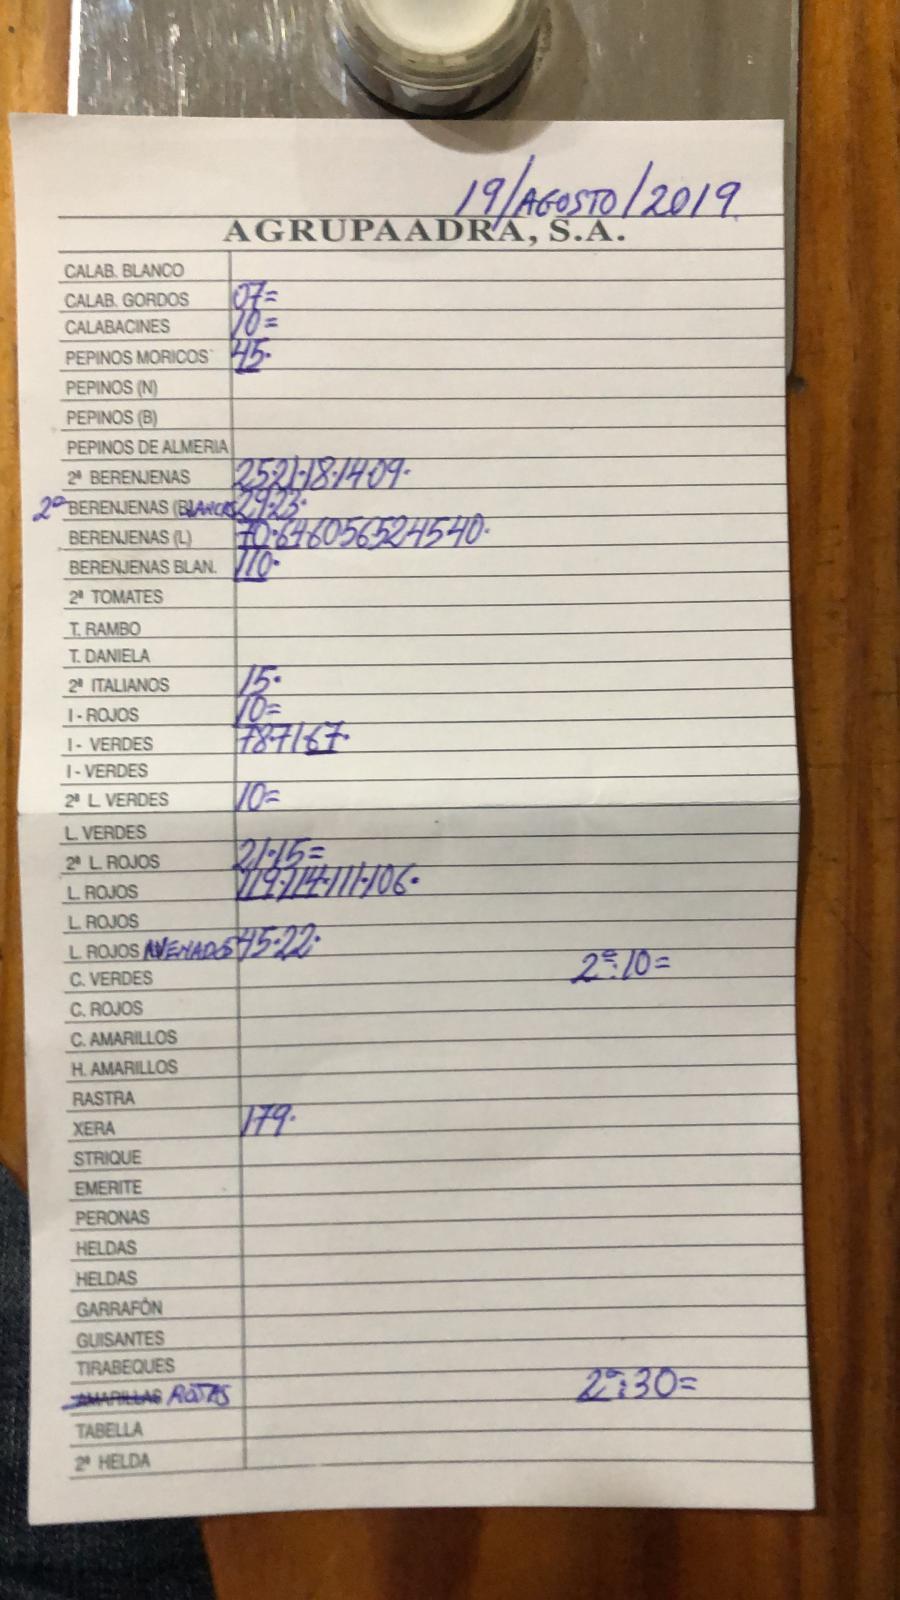 19/AGOSTO/2019
AGRUPAADRA, S.A.
CALAB. BLANCO
CALAB. GORDOS 07=
CALABACINES 10=
PEPINOS MORICOS 45.
PEPINOS (N)
PEPINOS (B)
PEPINOS DE ALMERIA
2ª BERENJENAS 25.21.18.14.09.
2ª BERENJENAS (BLANCAS 29.23.
BERENJENAS (L) 70.646056524540.
BERENJENAS BLAN. 110.
2ª TOMATES
T. RAMBO
T. DANIELA
2ª ITALIANOS 15.
I - ROJOS 10=
I - VERDES 78.7167.
I - VERDES
2ª L. VERDES 10=
L. VERDES
2ª L. ROJOS 21.15=
L. ROJOS 119.114.111.106.
L. ROJOS
L. ROJOS AVENADOS 45.22.
C. VERDES 2ª:10=
C. ROJOS
C. AMARILLOS
H. AMARILLOS
RASTRA
XERA 179.
STRIQUE
EMERITE
PERONAS
HELDAS
HELDAS
GARRAFÓN
GUISANTES
TIRABEQUES
AMARILLAS ROJAS 2ª:30=
TABELLA
2ª HELDA